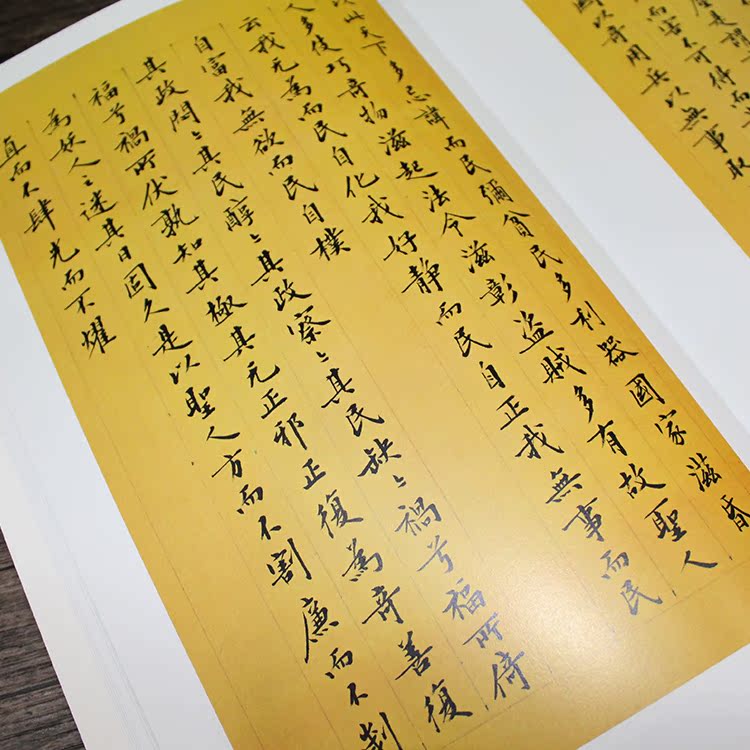 是謂
而害不可得而
國以奇用兵以無事取
以此天下多忌諱而民彌貧民多利器國家滋昏
人多伎巧奇物滋起法令滋彰盜賊多有故聖人
云我无為而民自化我好靜而民自正我無事而民
自富我無欲而民自樸
其政悶〻其民醇〻其政察〻其民缺〻禍兮福所倚
福兮禍所伏孰知其極其无正邪正復為奇善復
為妖人之迷其日固久是以聖人方而不割廉而不
直而不肆光而不耀